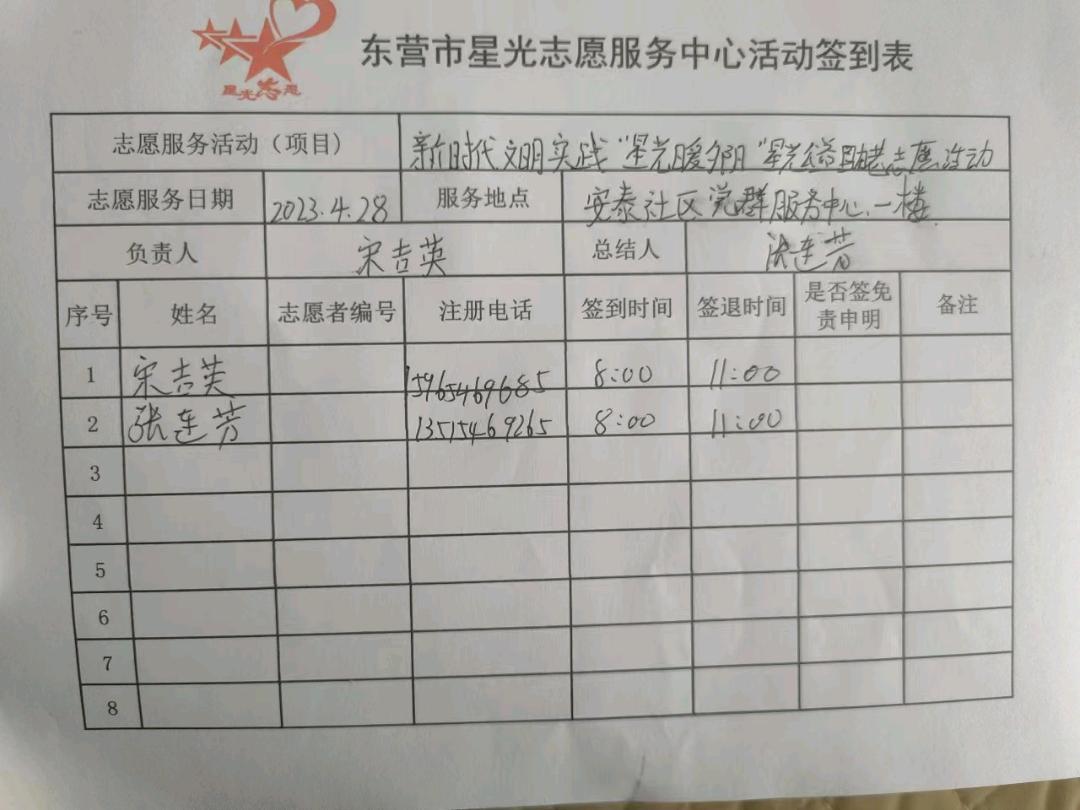 星光志愿
东营市星光志愿服务中心活动签到表
志愿服务活动（项目） 新时代文明实践“星光暖夕阳”星光公益助老志愿活动
志愿服务日期 2023.4.28 服务地点 安泰社区党群服务中心一楼
负责人 宋吉英 总结人 张连芳
序号 姓名 志愿者编号 注册电话 签到时间 签退时间 是否签免责申明 备注
1 宋吉英 15965469685 8:00 11:00
2 张连芳 13515469265 8:00 11:00
3
4
5
6
7
8